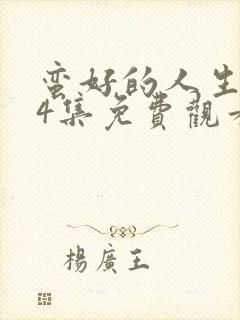 蛮好的人生
4集免費觀看
楊廣王